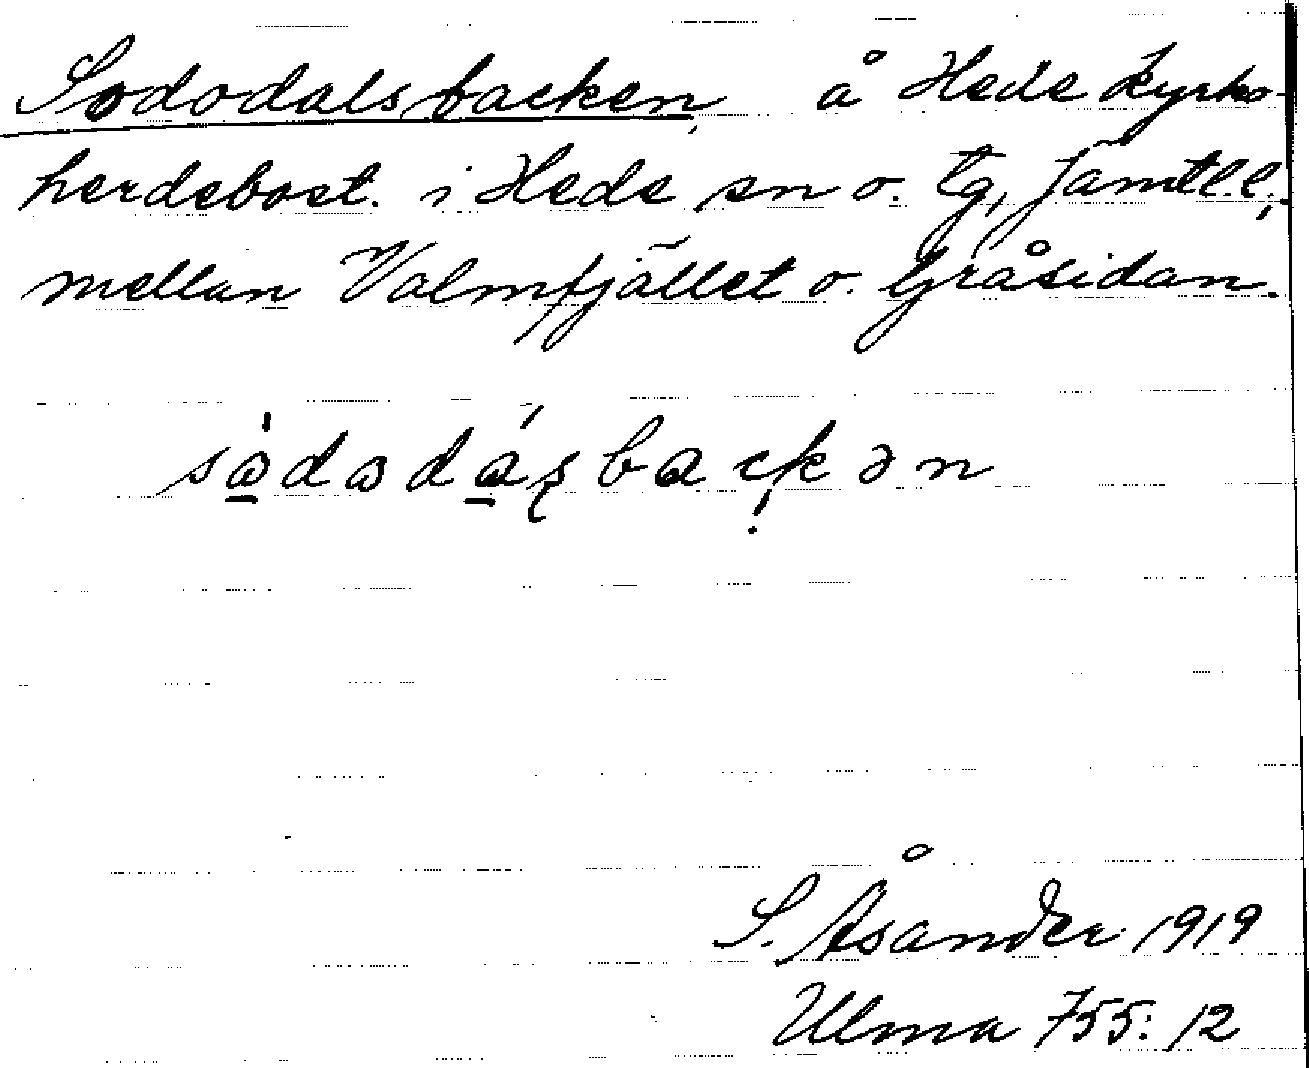 Sododalsbacken, å Hede kyrko-
herdebost. i Hede sn o. tg, Jämtl.l.,
mellan Valmfjället o. Gråsidan.
S. Åsander 1919
Ulma 755:12